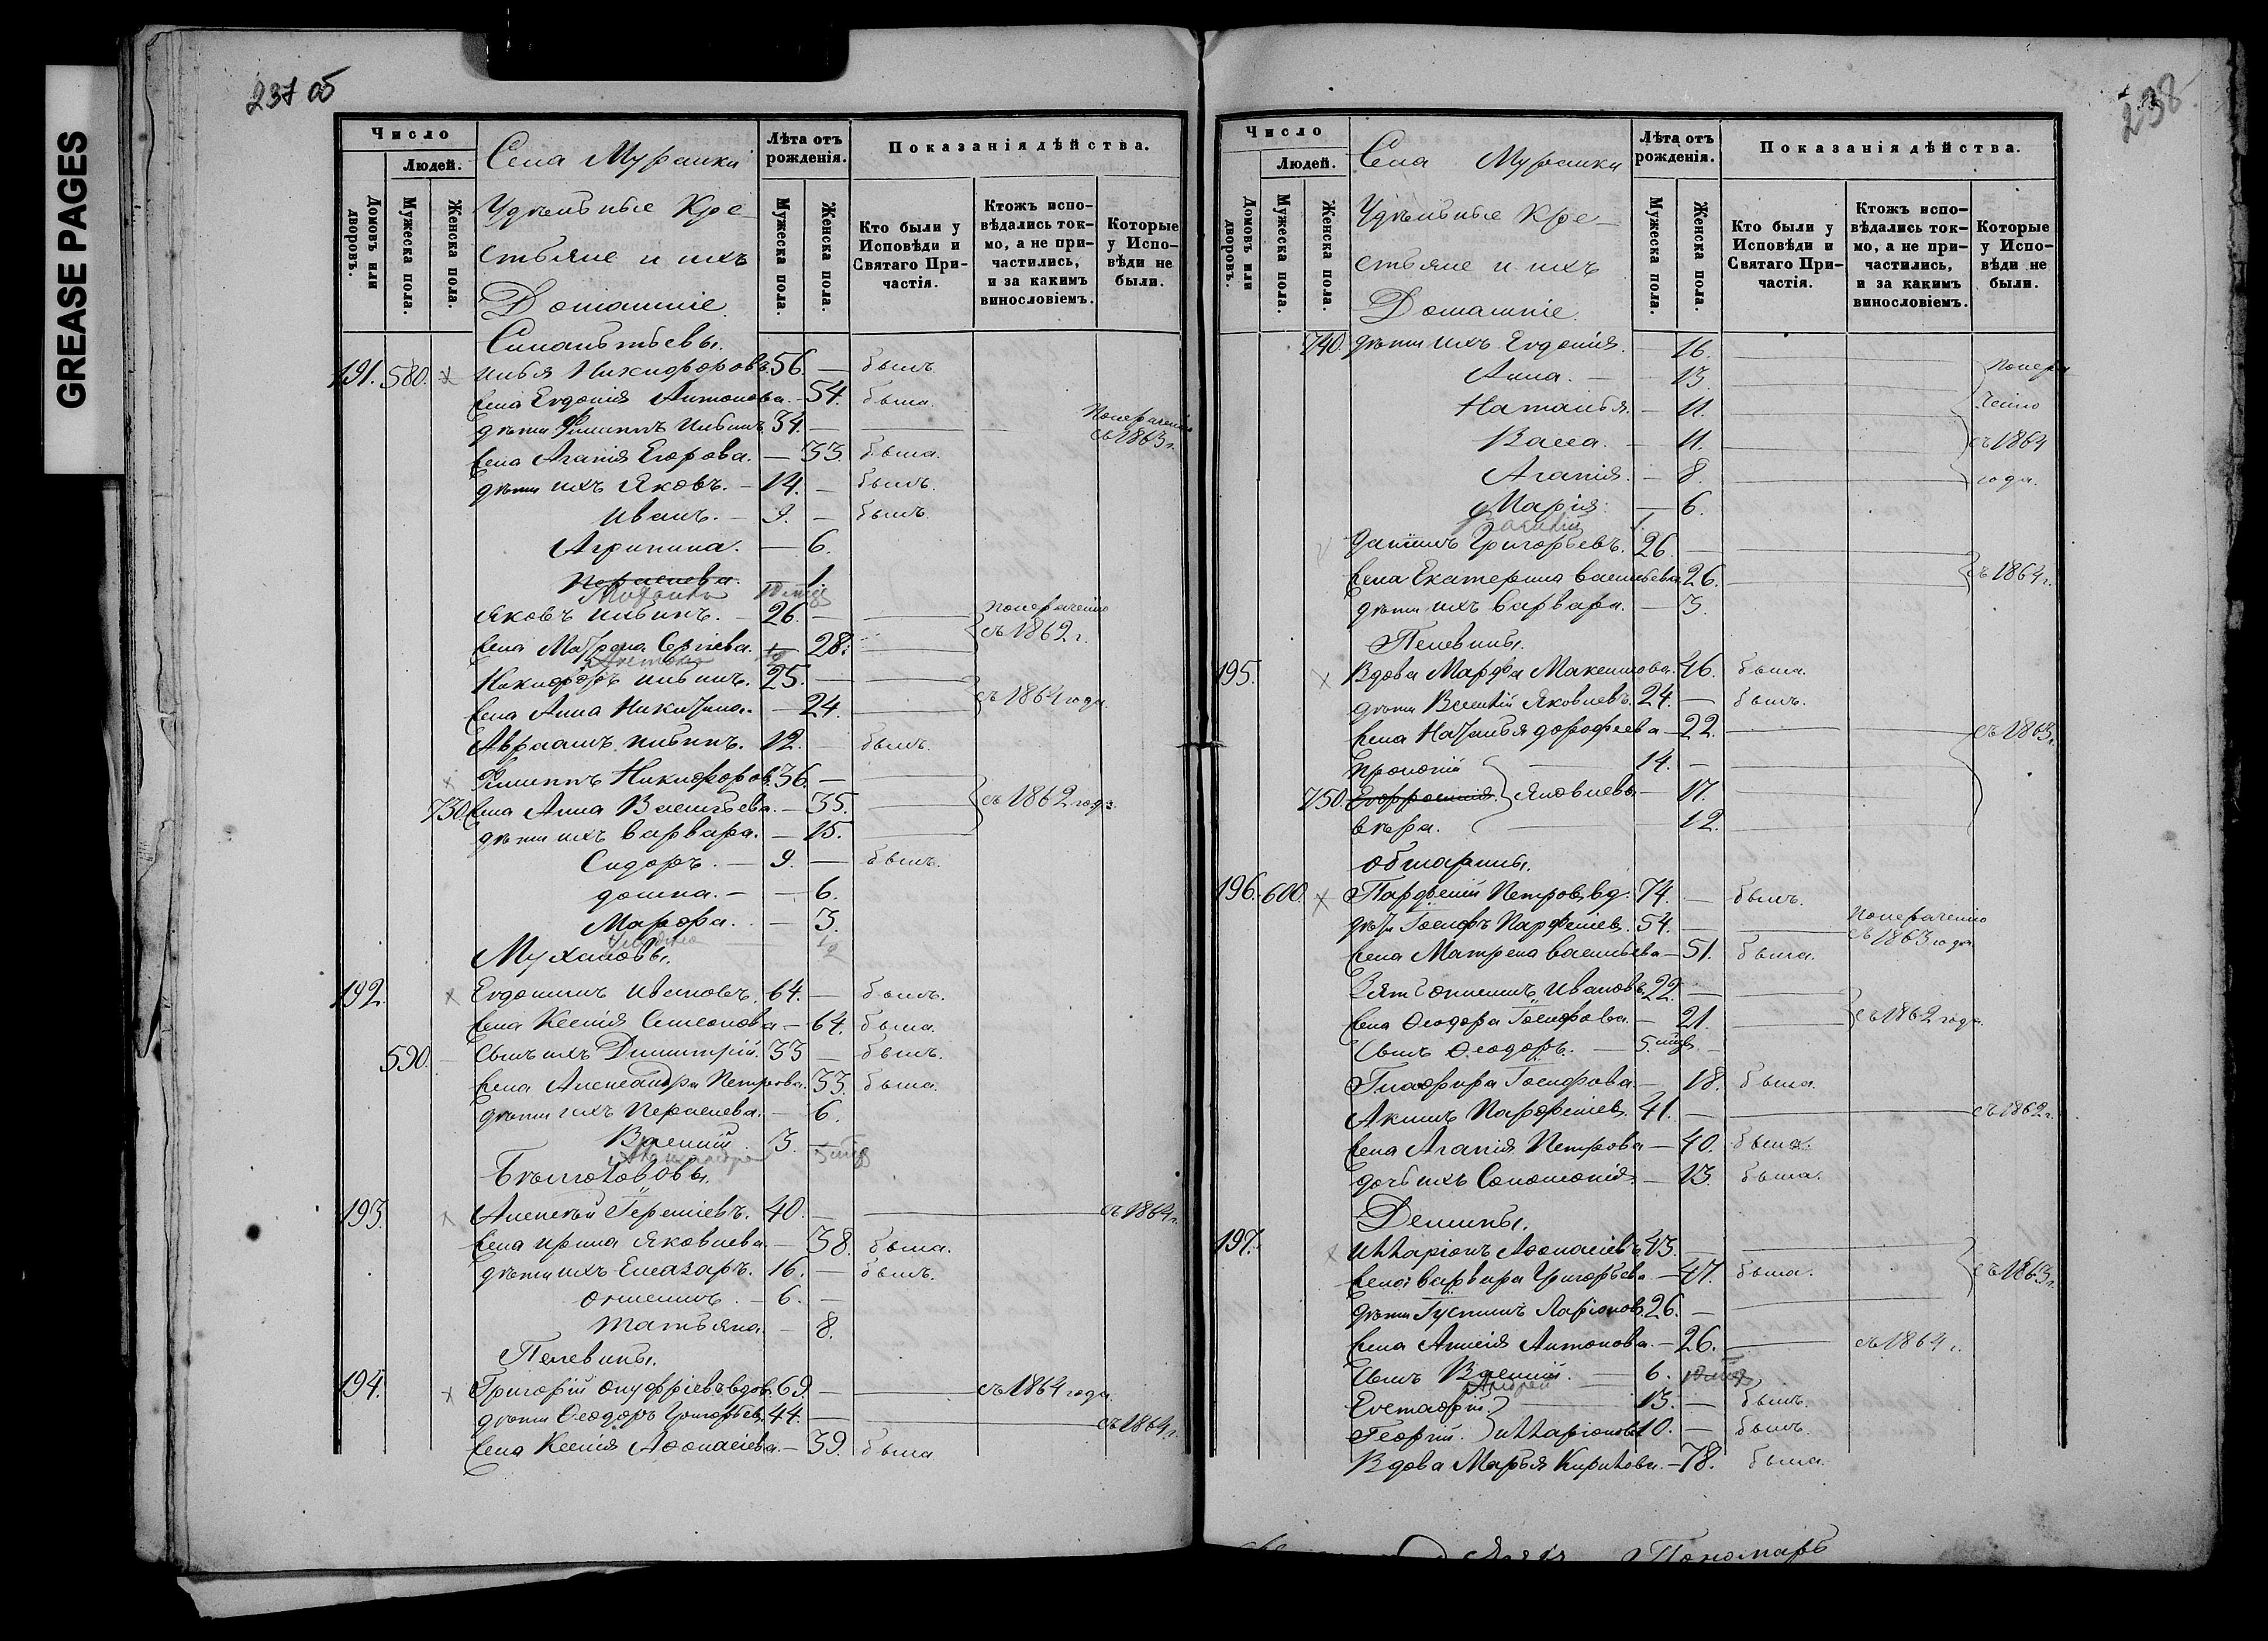 GREASE PAGES
237 об
Число
Людей.
Домовъ или дворовъ.
Мужеска пола.
Женска пола.
Села Муранки
Удѣльные Кре-
стьяне и ихъ
Домашніе.
Лѣта отъ рожденія.
Мужеска пола.
Женска пола.
Показанія дѣйства.
Кто были у Исповѣди и Святаго Причастія.
Ктожъ исповѣдались токмо, а не причастились, и за какимъ винословіемъ.
Которые у Исповѣди не были.
Силантьевы.
191. 580. Илья Никифоровъ. 56. — былъ.
Жена Евдокія Антонова. — 54. была.
дѣти Филиппъ Ильинъ. 34. —
съ 1863 г.
Жена Агапія Егорова. — 33. была.
дѣти ихъ Яковъ. — 14. — былъ.
Иванъ. — 9. — былъ.
Агрипина. — 6.
1.
Яковъ Ильинъ. — 26. —
съ 1862 г.
Жена Матрона Сергіева. 28.
Никифоръ Ильинъ. 25. —
съ 1864 года.
Жена Анна Никитина. — 24.
Авраамъ Ильинъ. 12. — былъ.
Филиппъ Никифоров. 36. —
730. Жена Анна Васильева. — 35. съ 1862 года.
дѣти ихъ Варвара. — 15.
Сидоръ. — 9. — былъ.
Домна. — — 6.
Марфа. — 3.
Мухановы.
192. Евдокимъ Ивановъ. 64. — былъ.
Жена Ксенія Симеонова — 64. была.
590. Сынъ ихъ Димитрій. 33 — былъ.
Жена Александра Петрова. 33. была.
дѣти ихъ Параскева. — 6.
Василій. 3.
193. Алексѣй Гермоліевъ. 40. — съ 1864 г.
Жена Ирина Яковлева. — 38. была.
дѣти ихъ Елеазаръ. 16. — былъ.
6. —
Татьяна. — 8.
Пелевины.
194. Григорій Онуфріевъ вдов. 69. — съ 1864 года.
дѣти Ѳеодоръ Григорьев. 44. — съ 1864 г.
Жена Ксенія Аѳонасіева. — 39. была
238
Число
Людей.
Домовъ или дворовъ.
Мужеска пола.
Женска пола.
Села Муранки
Удѣльные Кре-
стьяне и ихъ
Домашніе.
Лѣта отъ рожденія.
Мужеска пола.
Женска пола.
Показанія дѣйства.
Кто были у Исповѣди и Святаго Причастія.
Ктожъ исповѣдались токмо, а не причастились, и за какимъ винословіемъ.
Которые у Исповѣди не были.
740. дѣти ихъ Евдокія. — 16.
Анна. — 13.
Наталья. — 11.
Васса. — 11. съ 1864
Агапія. — 8. года.
Марія. — 6.
Данилъ Григорьевъ. 26. —
Жена Екатерина Васильева 26. съ 1864 г.
дѣти ихъ Варвара. — 3.
Пелевины.
195. Вдова Марфа Максимова. 46. была.
дѣти Василій Яковлевъ. 24. — былъ.
Жена Наталья Дорофеева — 22. съ 1863 г.
14. —
750. Евфросинія. Яковлевы — 17.
Вѣра. 12.
196. 600. Парфеній Петров. вд. 74. — былъ.
дѣти Іосифъ Парфеніев. 54. — съ 1863 года
Жена Матрена Васильева — 51. была.
Ивановъ. 22. —
Жена Ѳеодора Іосифова. — 21. съ 1862 года.
Сынъ Ѳеодоръ. — 5.
Глафира Іосифова. — 18. была.
Акимъ Парфеніев. 41. — съ 1862 г.
Жена Агапія Петрова — 40. была.
дочь ихъ Соломонія. — 13. была.
Демины.
197. Илларіонъ Аѳонасіевъ 43. —
Жена Варвара Григорьева — 47. была. съ 1863 г.
дѣти Іустинъ Ларіонов. 26. —
Жена Антонова. — 26. съ 1864 г.
Сынъ Василій. — 6.
Евстафій. 13. — былъ.
Георгій. Илларіоновы 10. — былъ.
Вдова Марья Кирилова. — 78. была.
Пономарь